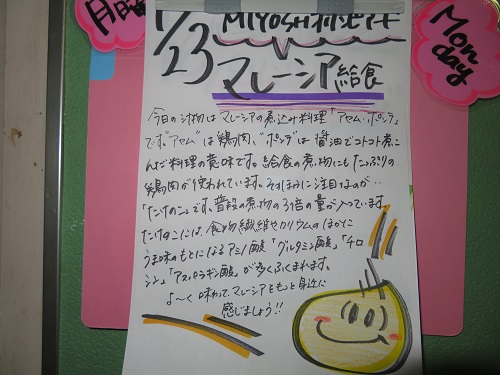 月曜
Monday
7/23
MIYOSHI村ピアキ
マレーシア給食
今日の汁物はマレーシアの煮込み料理「アヤム・ポンテ」
です。"アヤム"は鶏肉、"ポンテ"は醤油でコトコト煮
こんだ料理の意味です。給食の煮物にもたっぷりの
鶏肉が使われています。それ以外に注目なのが‥
「たけのこ」です。普段の煮物の3倍の量が入っています。
たけのこには、食物繊維やカリウムのほかに
うま味のもとになるアミノ酸「グルタミン酸」「チロ
シン」「アスパラギン酸」が多くふくまれます。
よ〜く味わって、マレーシアをもっと身近に
感じましょう!!